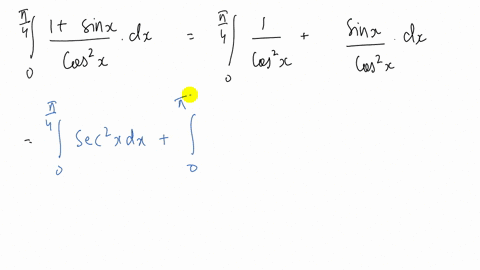 ∫₀^{π/4} (1 + sinx)/(Cos²x) . dx = ∫₀^{π/4} 1/(Cos²x) + Sinx/(Cos²x) . dx
= ∫₀^{π/4} Sec²x dx + ∫₀^{π}